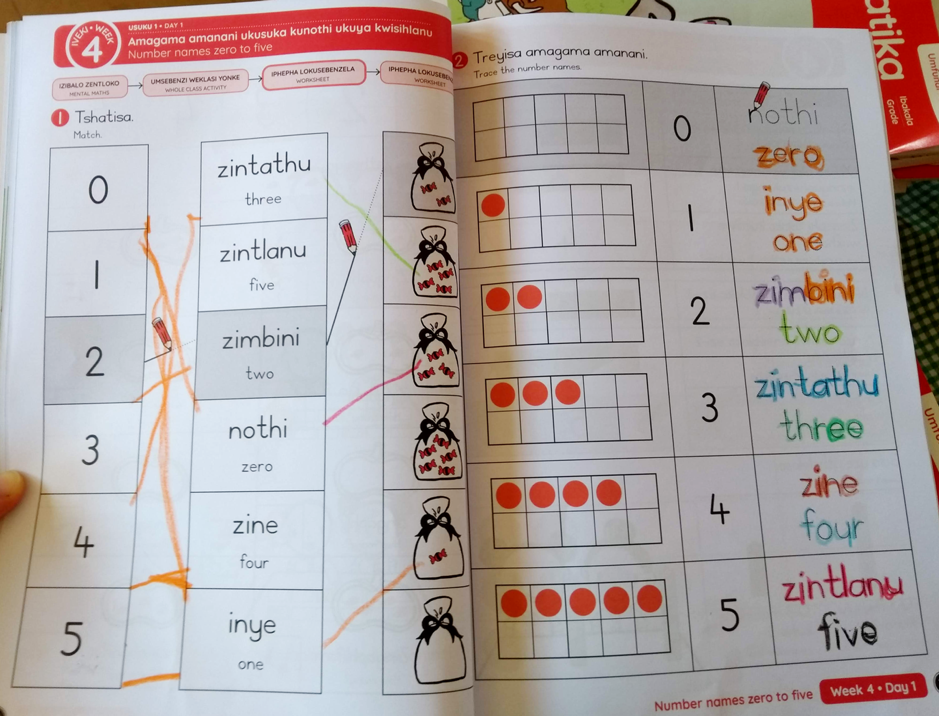 IVEKI • WEEK
4
USUKU 1 • DAY 1
Amagama amanani ukusuka kunothi ukuya kwisihlanu
Number names zero to five
IZIBALO ZENTLOKO
MENTAL MATHS
UMSEBENZI WEKLASI YONKE
WHOLE CLASS ACTIVITY
IPHEPHA LOKUSEBENZELA
WORKSHEET
IPHEPHA LOKUSEBEN
WORKSHEET
1 Tshatisa.
Match.
0
1
2
3
4
5
zintathu
three
zintlanu
five
zimbini
two
nothi
zero
zine
four
inye
one
2 Treyisa amagama amanani.
Trace the number names.
0
nothi
zero
1
inye
one
2
zimbini
two
3
zintathu
three
4
zine
four
5
zintlanu
five
Number names zero to five
Week 4 • Day 1
atika
Ibakala
Grade